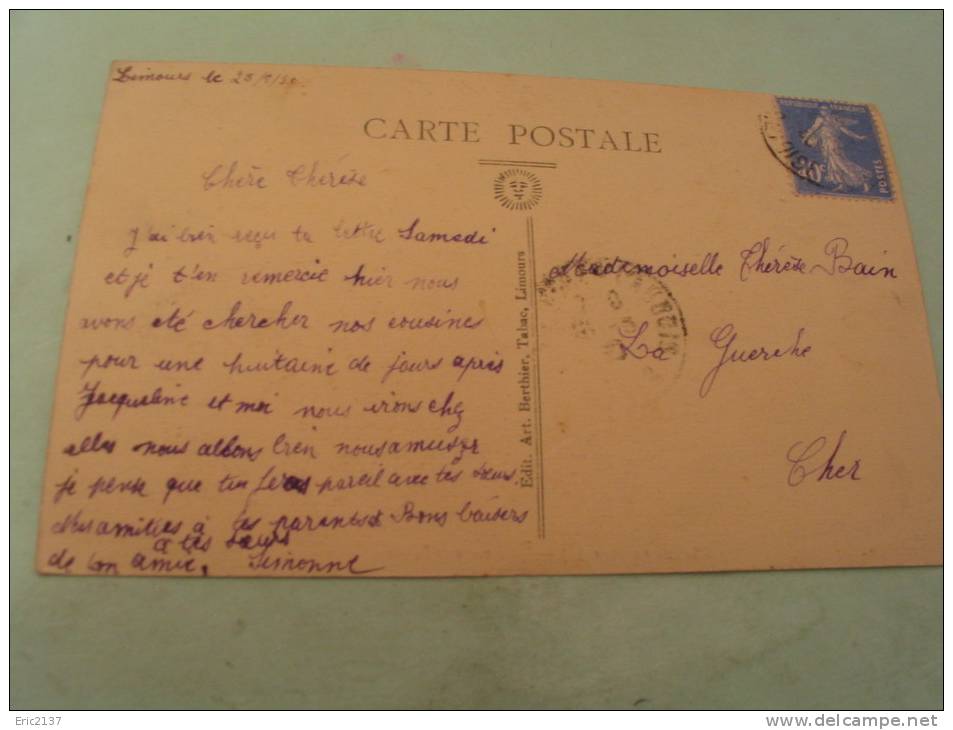 Limours le 25
CARTE POSTALE
REPUBLIQUE FRANÇAISE
POSTES
Chère Thérèse
J'ai bien reçu ta lettre Samedi
et je t'en remercie hier nous
avons été chercher nos cousines
pour une huitaine de jours après
Jacqueline et moi nous irons chez
elles nous allons bien nous amuser
je pense que tu feras pareil avec tes sœurs.
Mes amitiés à tes parents & Bons baisers
à tes sœurs
de ton amie, Simonne
Edit. Art. Berthier, Tabac, Limours
Mademoiselle Thérèse Bain
La Guerche
Cher
Eric2137
www.delcampe.net